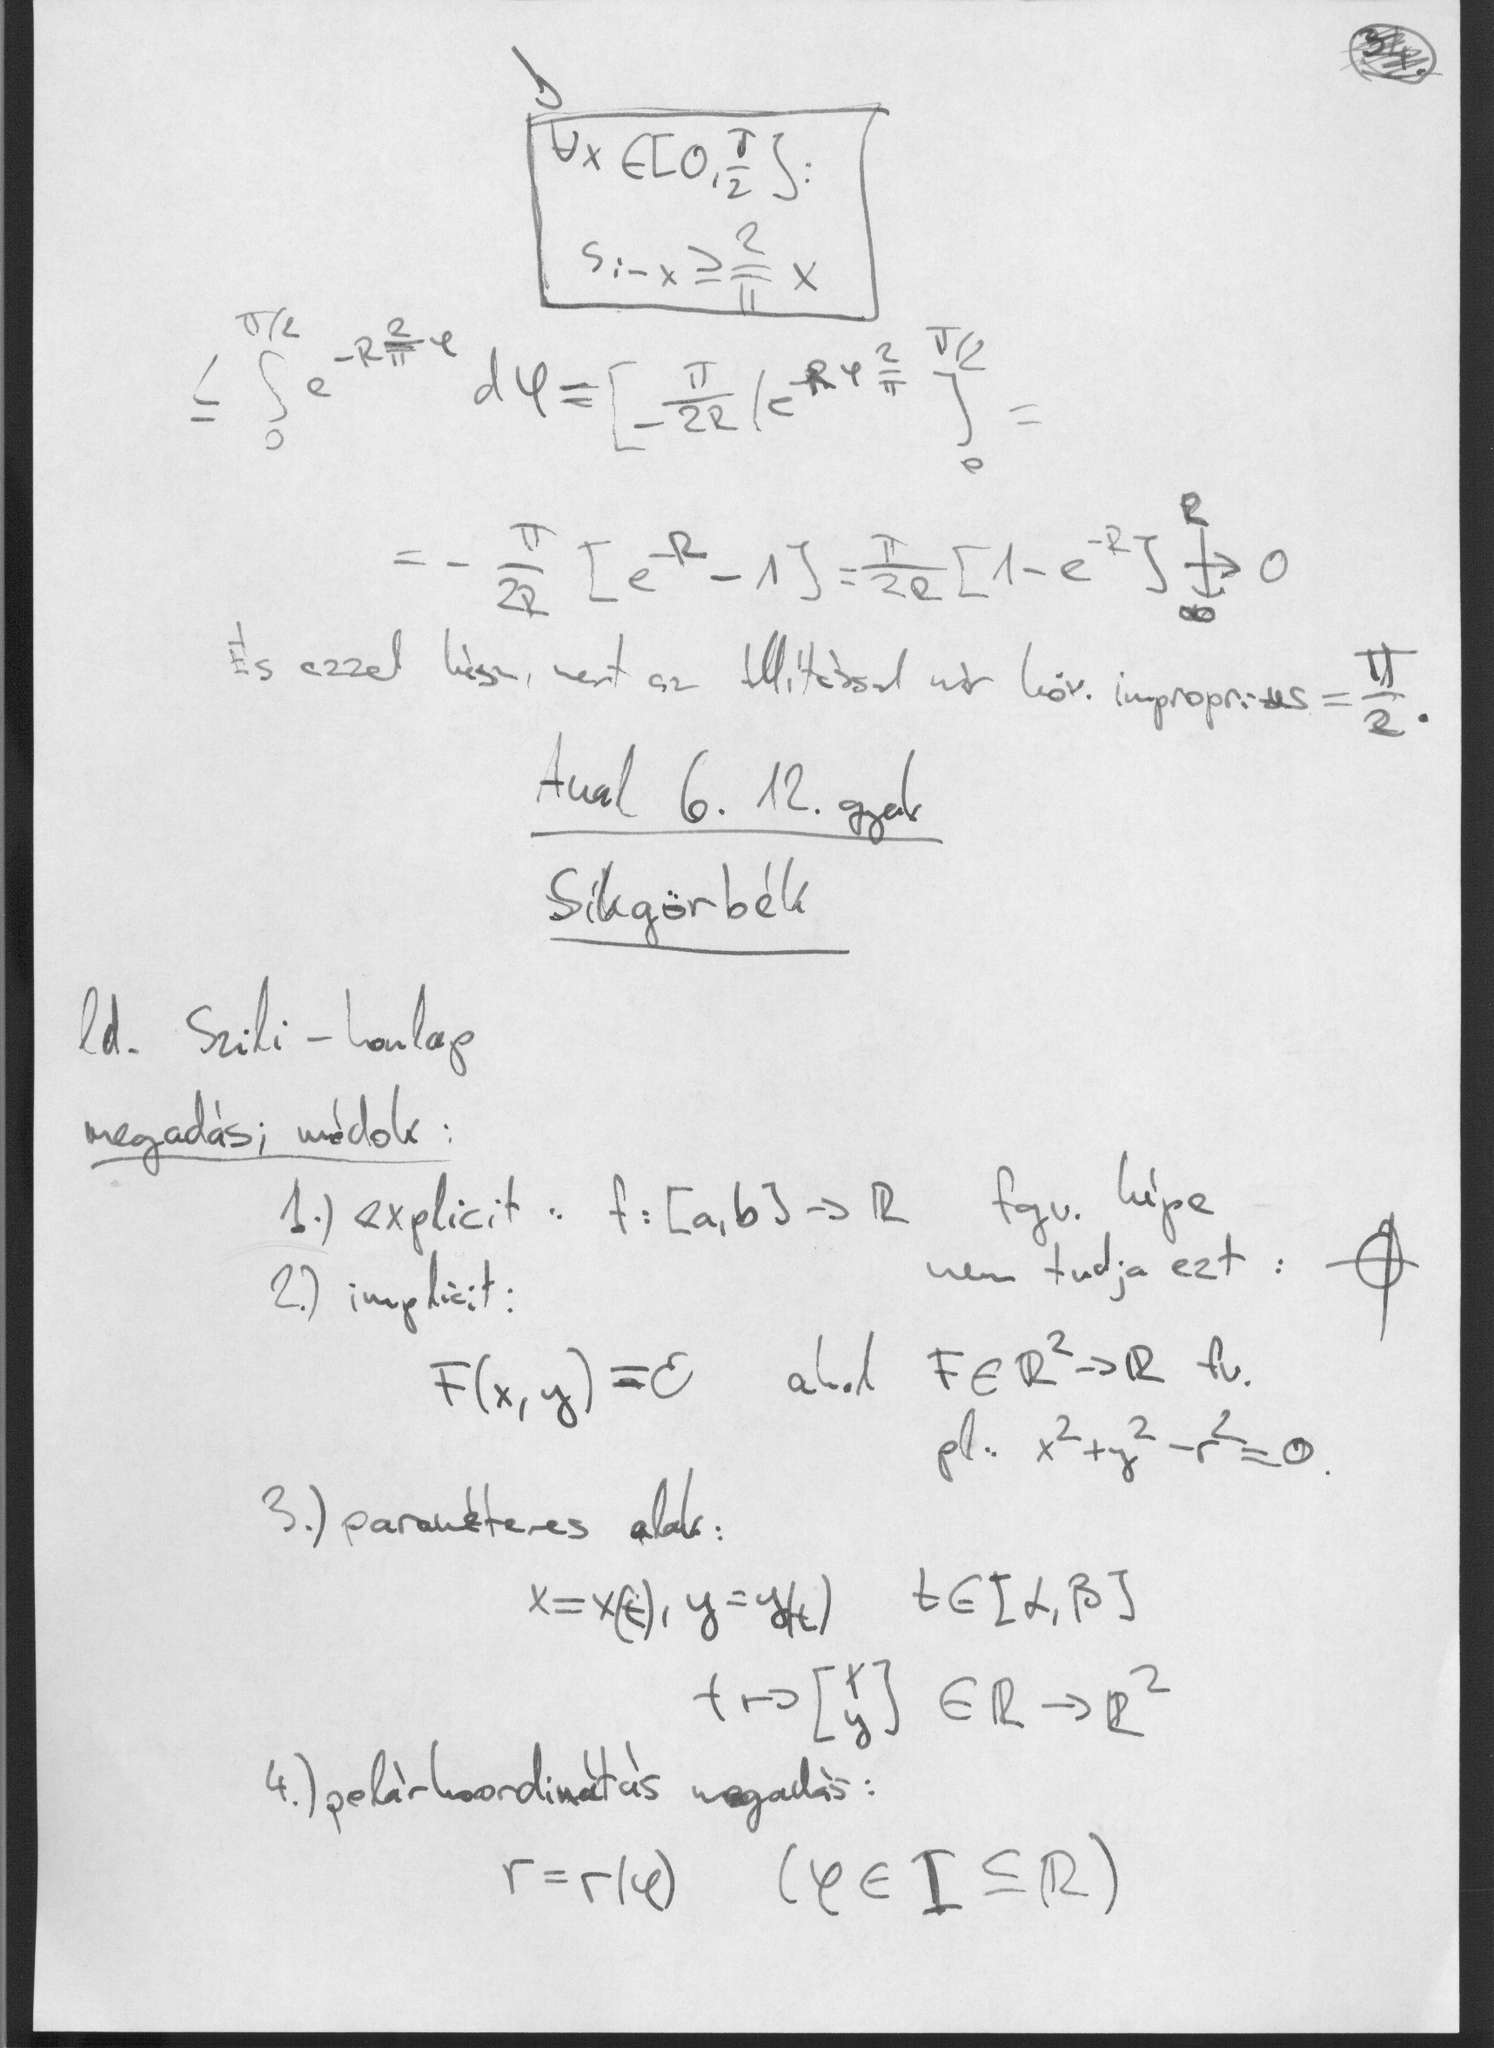 ∀x ∈ [0, π/2]:
sin x ≥ 2/π x
≤ ∫₀^{π/2} e^{-R 2/π φ} dφ = [-π/2R (e^{-Rφ 2/π}]₀^{π/2} =
= - π/2R [e^{-R} - 1] = π/2R [1 - e^{-R}] → 0
R → ∞
És ezzel kész, mert az állítással már köv. improprius = π/2.
Anal 6. 12. gyak
Síkgörbék
ld. Szili-honlap
megadási módok:
1.) explicit: f: [a,b] → ℝ fgv. képe
nem tudja ezt:
2.) implicit:
F(x, y) = 0 ahol F ∈ ℝ² → ℝ fv.
pl.: x² + y² - r² = 0.
3.) paraméteres alak:
x = x(t), y = y(t) t ∈ [α, β]
t ↦ [x y] ∈ ℝ → ℝ²
4.) polárkoordinátás megadás:
r = r(φ) (φ ∈ I ⊆ ℝ)